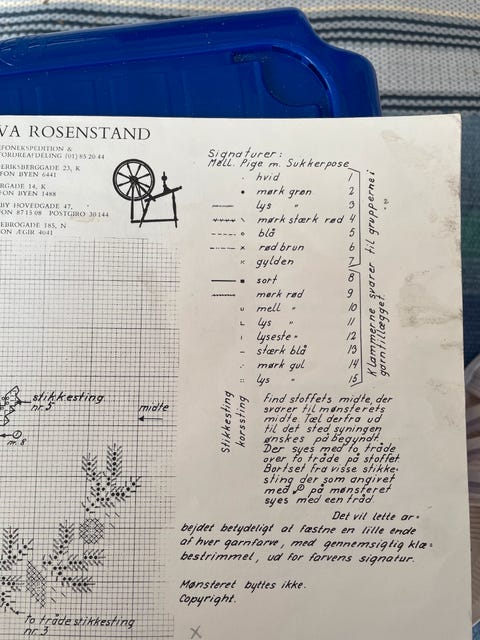 VA ROSENSTAND
EFONEKSPEDITION &
FORDREAFDELING (01) 85 20 44
ERIKSBERGGADE 23, K
FON BYEN 6441
RGADE 14, K
FON BYEN 1488
BY HOVEDGADE 47,
FON 87 15 08 POSTGIRO 30 144
EBROGADE 185, N
ON ÆGIR 4041
Signaturer:
Mell. Pige m. Sukkerpose
hvid 1
mørk grøn 2
lys " 3
mørk stærk rød 4
blå 5
rød brun 6
gylden 7
sort 8
mørk rød 9
mell " 10
lys " 11
lyseste " 12
stærk blå 13
mørk gul 14
lys " 15
Klammerne svarer til grupperne i
garntillægget.
Stikkesting
korssting
Find stoffets midte, der
svarer til mønsterets
midte. Tæl derfra ud
til det sted syningen
ønskes påbegyndt.
Der syes med to tråde
over to tråde på stoffet.
Bortset fra visse stikke-
sting der som angivet
med på mønsteret
syes med een tråd.
Det vil lette ar-
bejdet betydeligt at fæstne en lille ende
af hver garnfarve, med gennemsigtig klæ=
bestrimmel, ud for farvens signatur.
Mønsteret byttes ikke.
Copyright.
stikkesting
nr. 5
midte
nr. 8
to tråde stikkesting
nr. 3
x